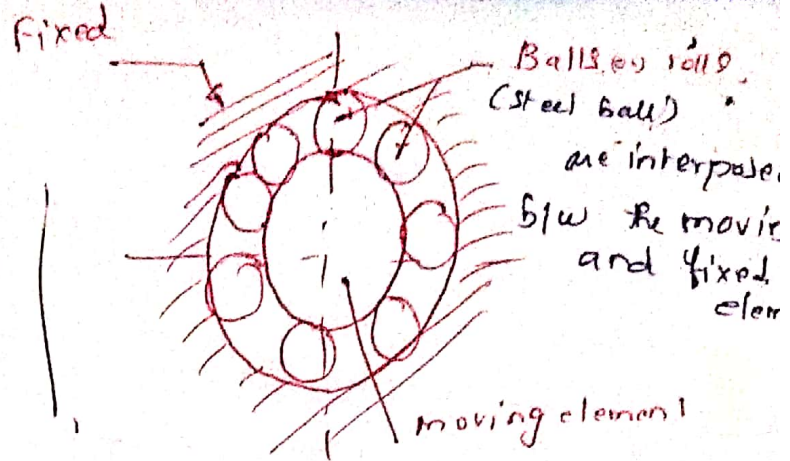 Fixed
Balls or rolls.
(Steel ball)
are interpose
b/w the movi
and fixed
elem
moving element